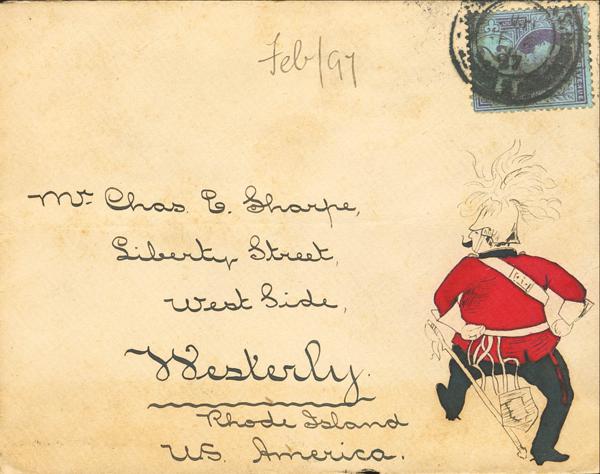 Feb/97
Mr Chas. E. Sharpe,
Liberty Street,
West Side,
Westerly.
Rhode Island
U.S. America.